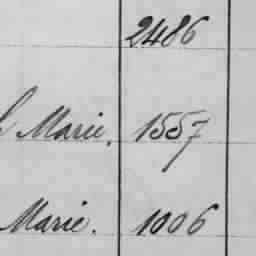 2486
Marie. 1557
Marie. 1006